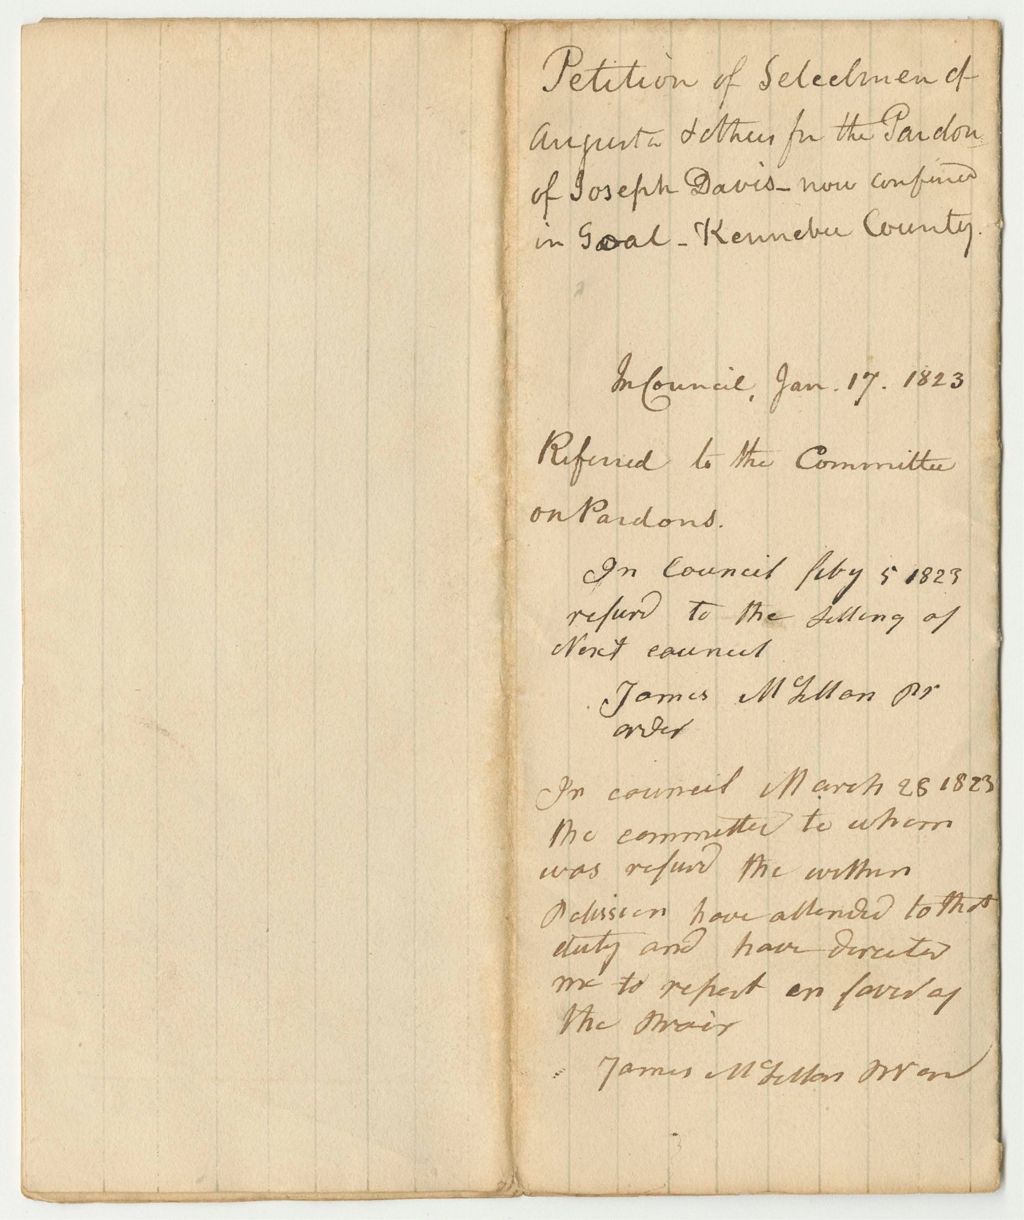 Petition of Selectmen of
Augusta & others for the Pardon
of Joseph Davis - now confined
in Goal - Kennebec County.
In Council, Jan. 17. 1823
Referred to the Committee
on Pardons.
In Council feby 5 1823
referd to the setting of
Next council
James McLellan Pr
order
In council March 28 1823
the committee to whom
was referd the within
Petission have attended to that
duty and have directed
me to report in favor of
the
James McLellan